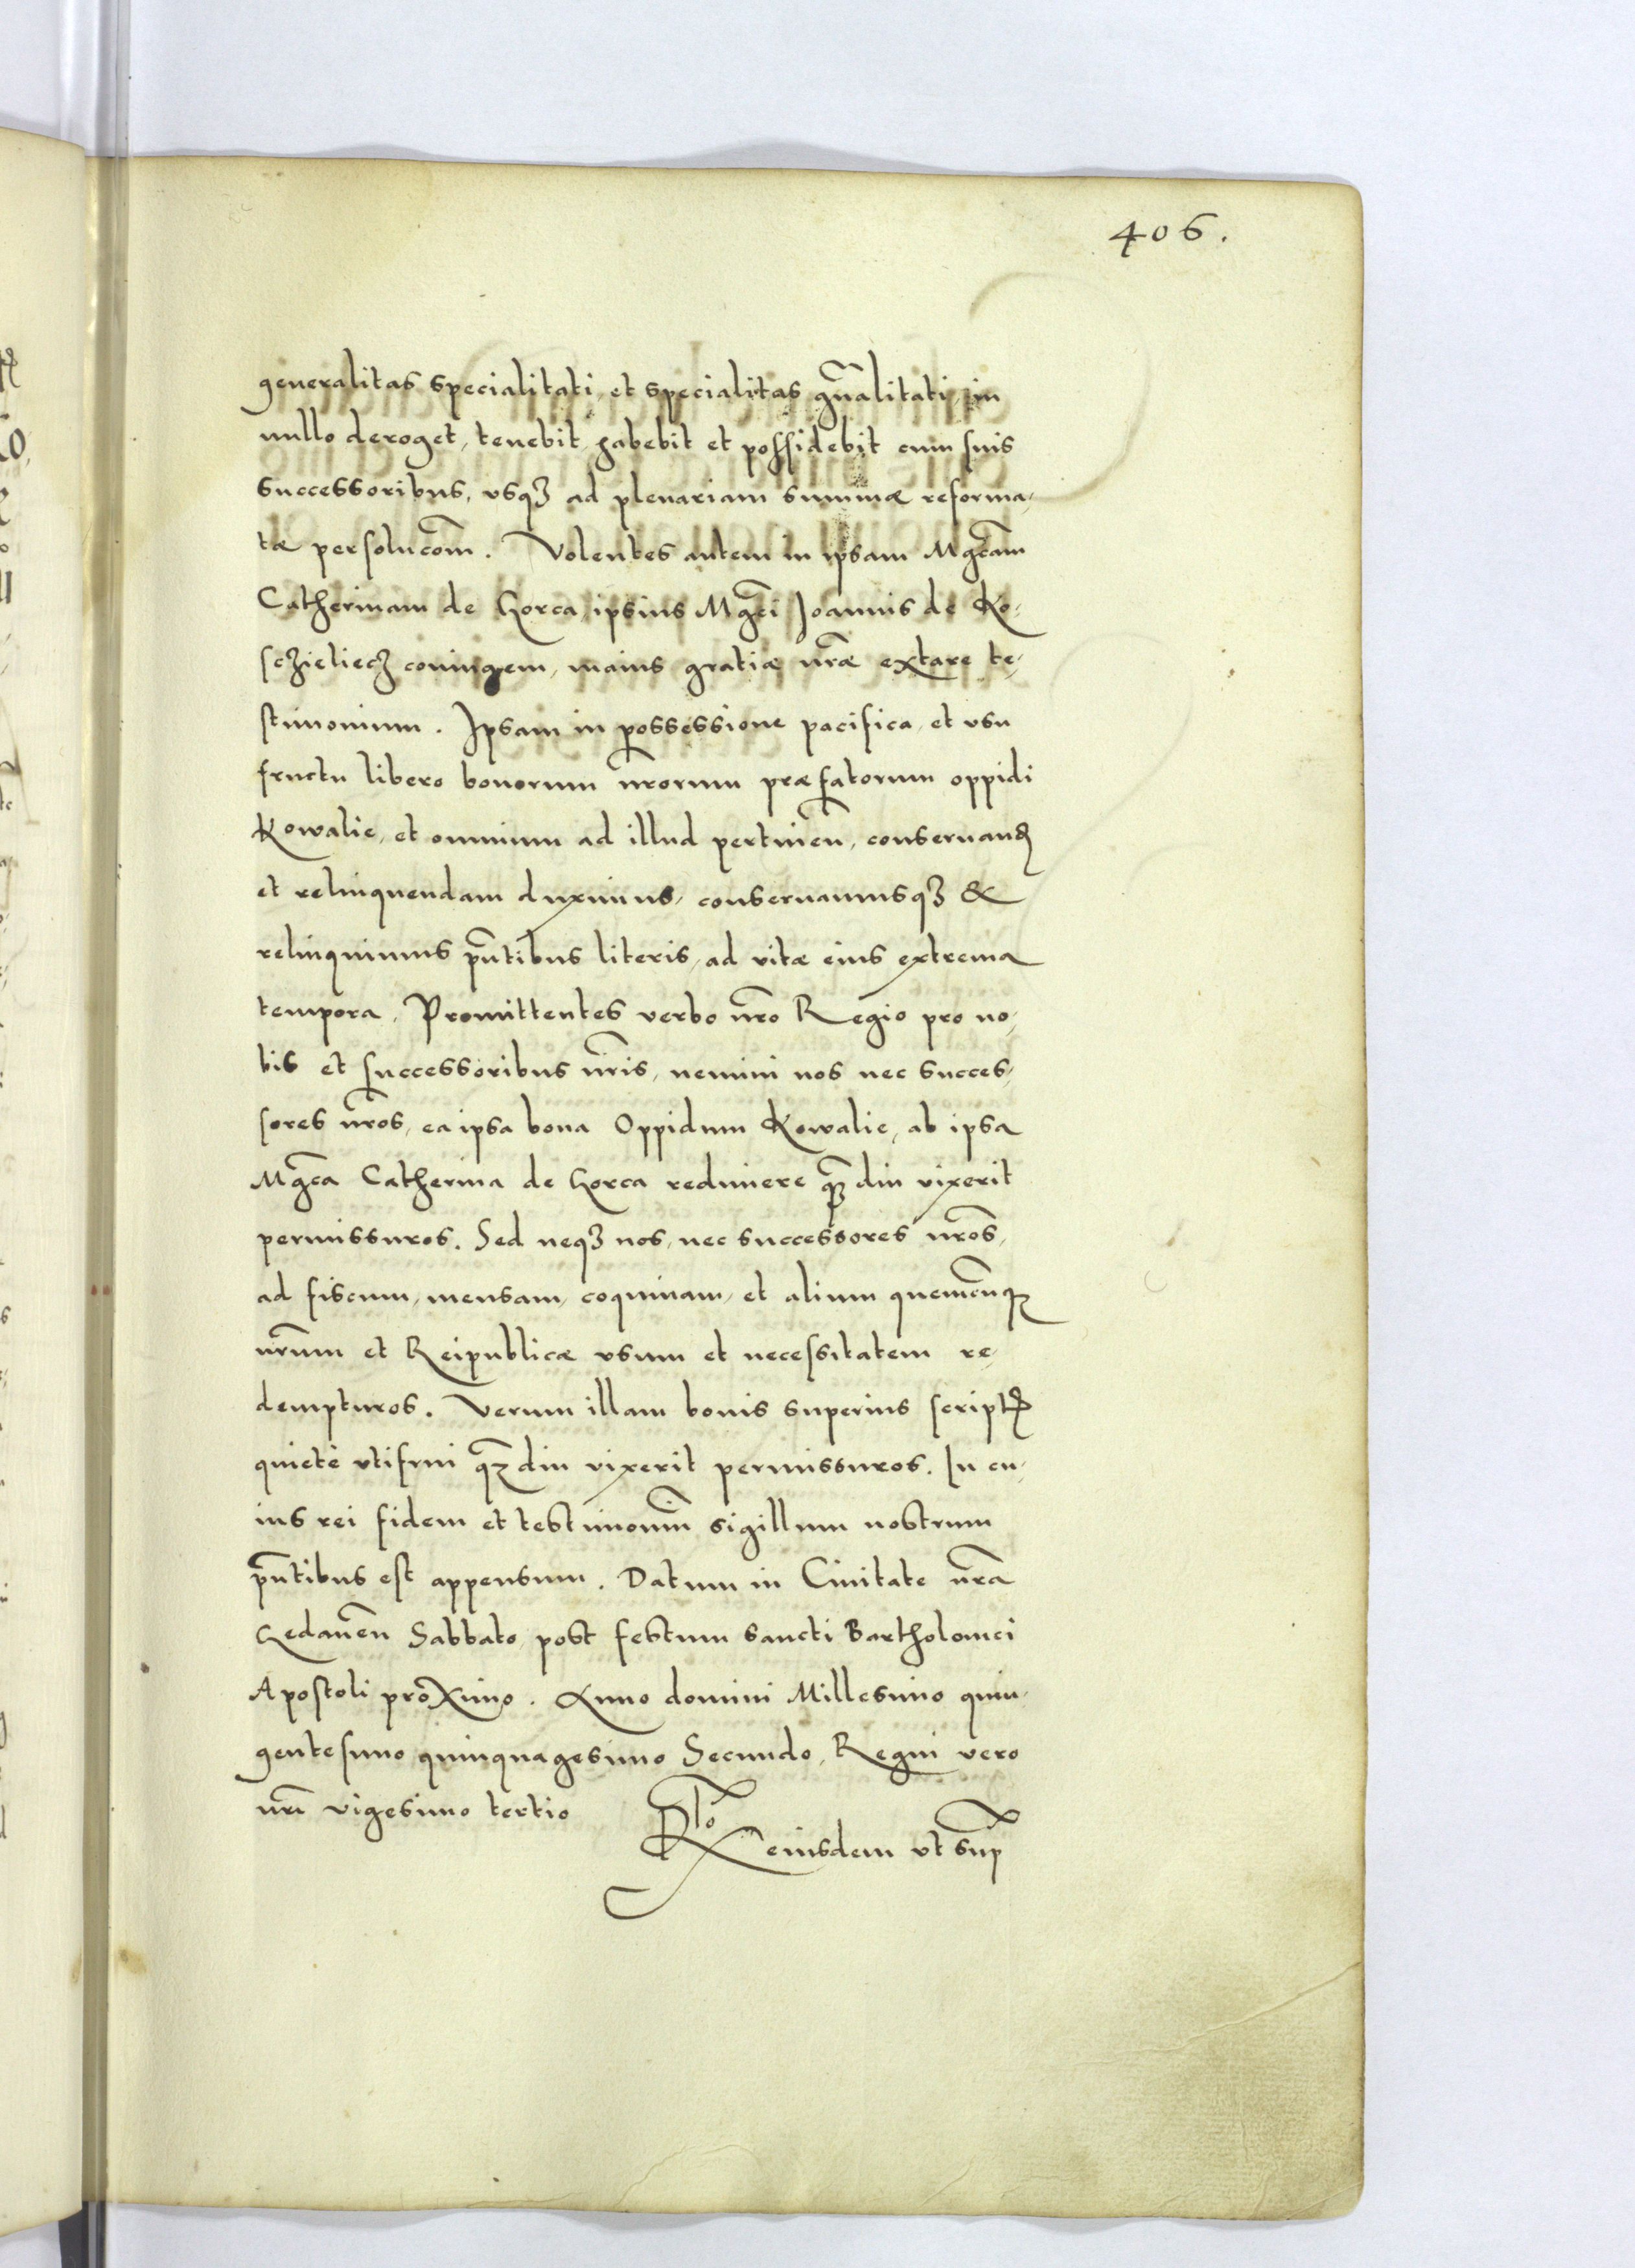 406.
generalitas specialitati, et specialitas gñalitati, in
nullo deroget, tenebit habebit et possidebit cum suis
successoribus, vsqȝ ad plenariam summæ reforma-
tæ persolucõm. Volentes autem in ipsam Mgcãm
Catherinam de Gorca, ipsius Mgci Joannis de Ko-
sczieliecz coniugem, maius gratiæ nr̃æ extare te-
stimonium. Ipsam in possessione pacifica, et vsu
fructu libero bonorum nr̃orum præfatorum oppidi
Kowalie, et omnium ad illud pertinẽn, conseruanđ
et relinquendam duximus, conseruamusqȝ &
relinquimus pñtibus literis, ad vitæ eius extrema
tempora. Promittentes verbo nr̃o Regio pro no-
bis et successoribus nr̃is, nemini nos nec succes-
sores nr̃os, ea ipsa bona Oppidum Kowalie, ab ipsa
Mgca Catherina de Gorca redimere qȝ̃ diu vixerit
permissuros. Sed neqȝ nos, nec successores nr̃os,
ad fiscum, mensam, coquinam, et alium quemcũqȝ
nr̃um et Reipublicæ vsum et necessitatem re-
dempturos. Verum illam bonis superius script̃
quietè vtifrui qȝ̃ diu vixerit permissuros. In cu-
ius rei fidem et testimoniũ sigillum nostrum
pñtibus est appensum. Datum in Ciuitate nr̃a
Gedanẽn Sabbato post festum sancti Bartholomei
Apostoli proximo. Anno domini Millesimo quin-
gentesimo quinquagesimo Secundo, Regni vero
nr̃i vigesimo tertio
Rlõ eiusdem vt sup̃